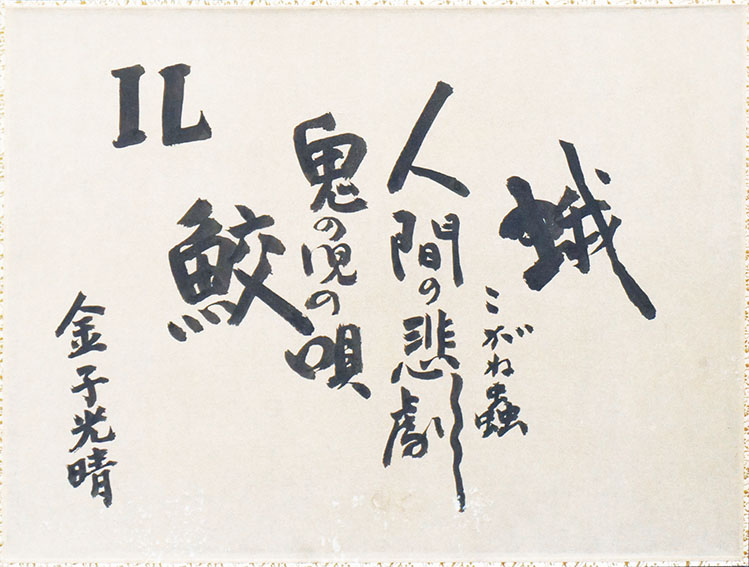 蛾
こがね蟲
人間の悲劇
鬼の児の唄
鮫
IL
金子光晴